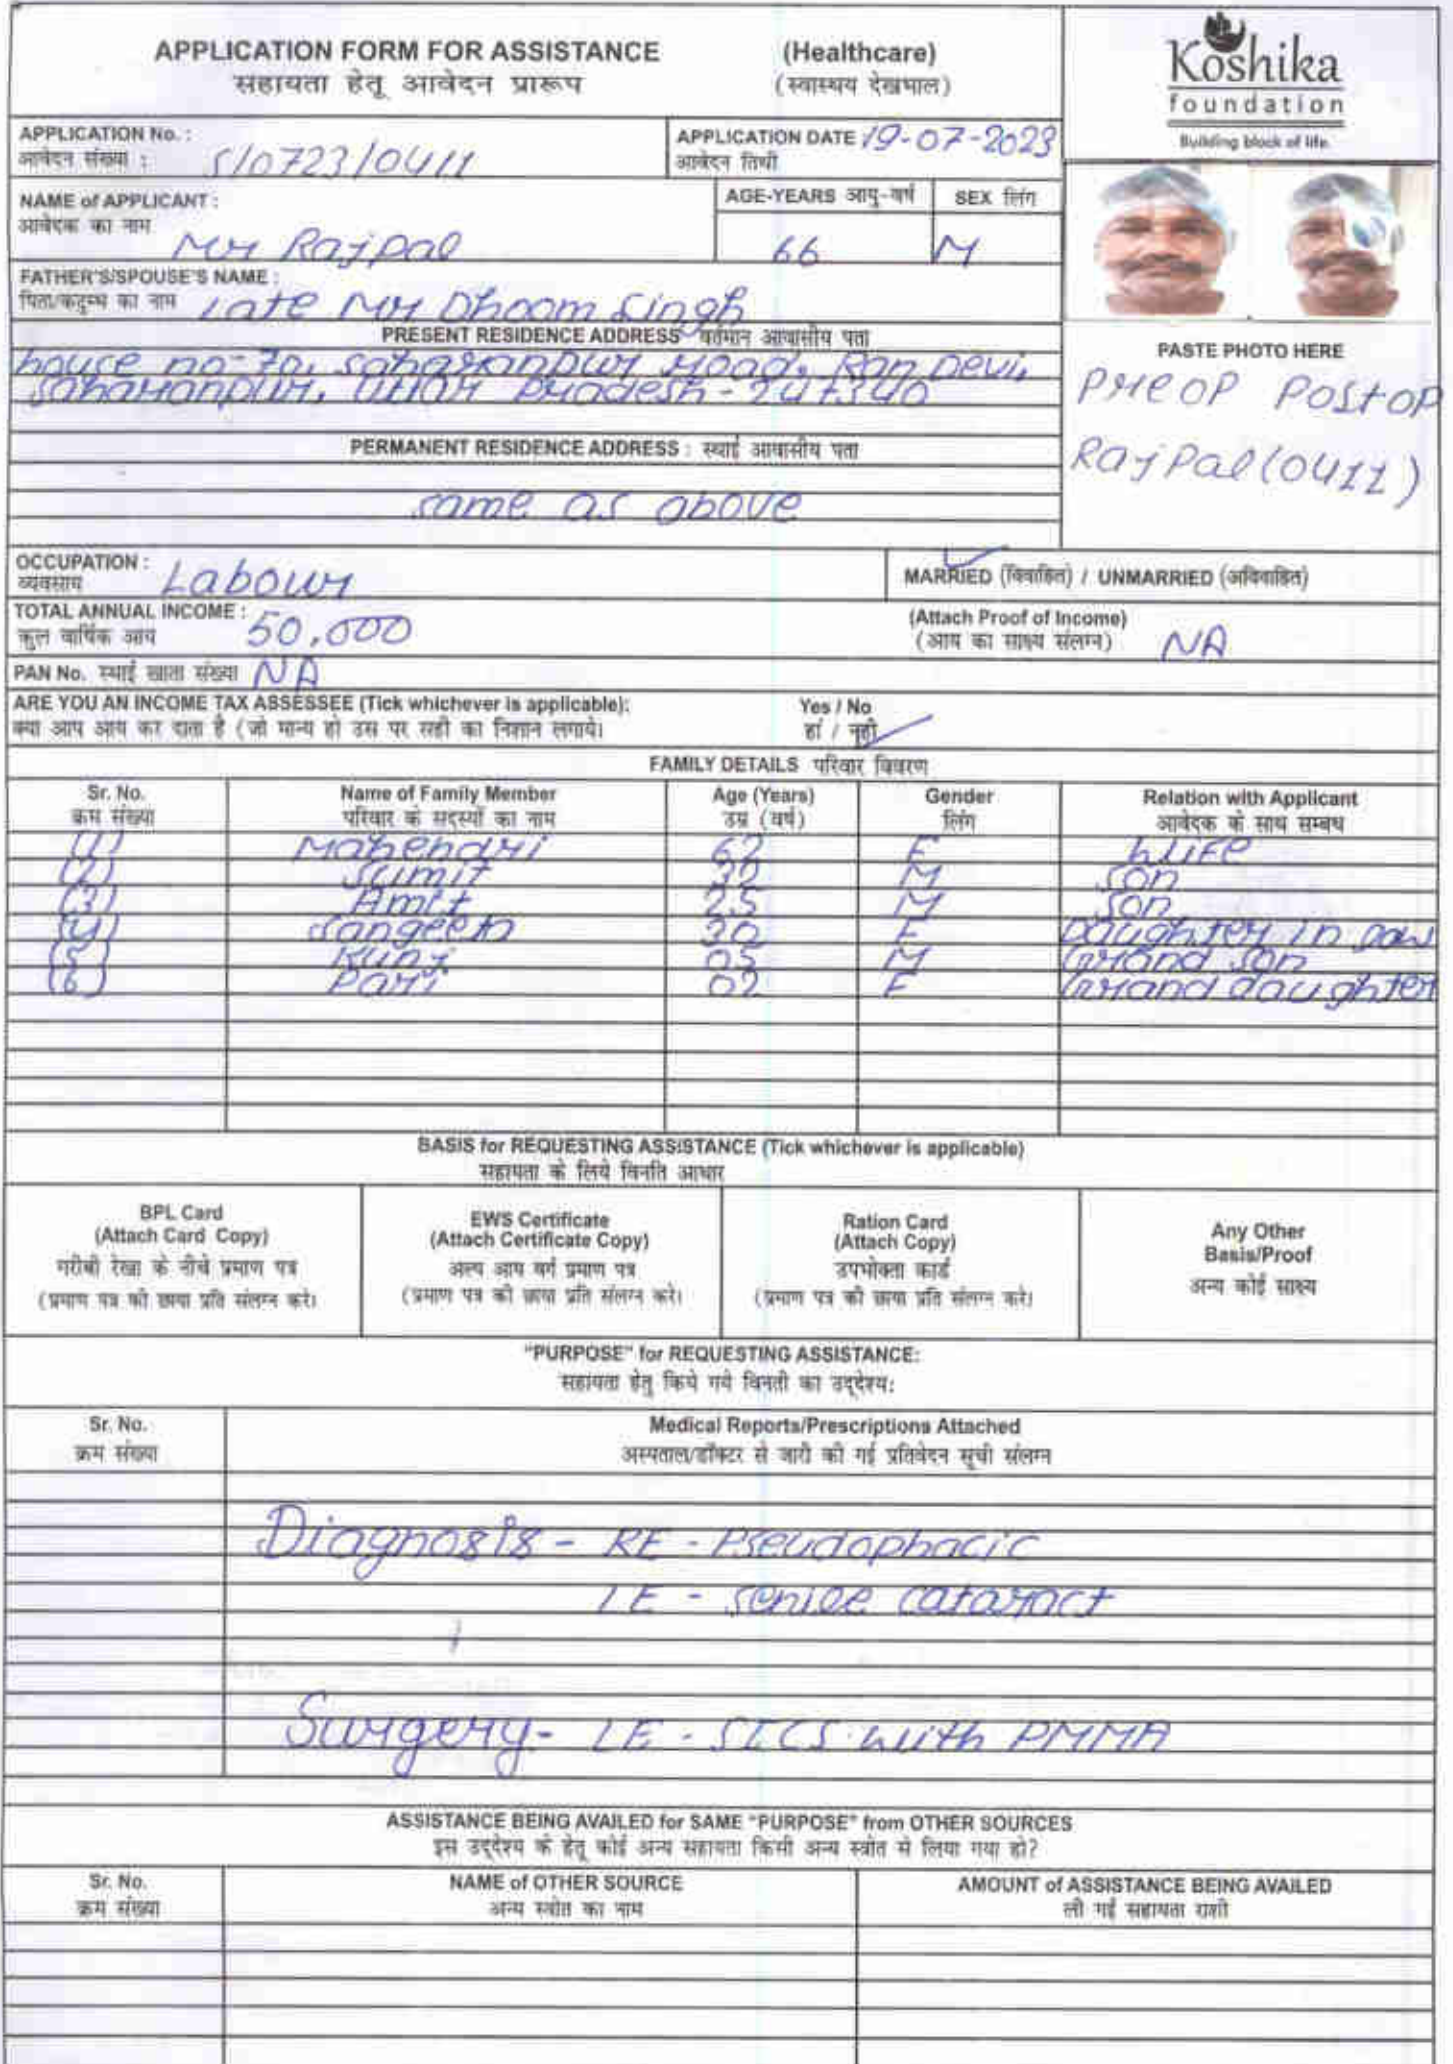 APPLICATION FORM FOR ASSISTANCE (Healthcare)
सहायता हेतू आवेदन प्रारूप (स्वास्थय देखभाल)
Koshika
foundation
Building block of life.
APPLICATION No. : S/0723/0411
आवेदन संख्या :
APPLICATION DATE 19-07-2023
आवेदन तिथी
NAME of APPLICANT :
आवेदक का नाम Mr Rajpal
AGE-YEARS आयु-वर्ष SEX लिंग
66 M
FATHER'S/SPOUSE'S NAME :
पिता/कटुम्ब का नाम Late Mr Dhoom Singh
PRESENT RESIDENCE ADDRESS वर्तमान आवासीय पता
house no-70, saharanpur road, Ran Devi,
saharanpur, Uttar Pradesh - 247340
PERMANENT RESIDENCE ADDRESS : स्थाई आवासीय पता
same as above
PASTE PHOTO HERE
Preop Postop
Rajpal (0411)
OCCUPATION :
व्यवसाय Labour
MARRIED (विवाहित) / UNMARRIED (अविवाहित)
TOTAL ANNUAL INCOME : 50,000
कुल वार्षिक आय
(Attach Proof of Income)
(आय का साक्ष्य संलग्न) NA
PAN No. स्थाई खाता संख्या NA
ARE YOU AN INCOME TAX ASSESSEE (Tick whichever is applicable): Yes / No
क्या आप आय कर दाता है (जो मान्य हो उस पर सही का निशान लगाये। हां / नही
FAMILY DETAILS परिवार विवरण
Sr. No. Name of Family Member Age (Years) Gender Relation with Applicant
क्रम संख्या परिवार के सदस्यों का नाम उम्र (वर्ष) लिंग आवेदक के साथ सम्बध
(1) Mahendri 62 F Wife
(2) Sumit 30 M Son
(3) Amit 25 M Son
(4) Sangeeta 30 F Daughter in law
(5) Kunj 05 M Grand son
(6) Pari 02 F Grand daughter
BASIS for REQUESTING ASSISTANCE (Tick whichever is applicable)
सहायता के लिये विनति आधार
BPL Card
(Attach Card Copy)
गरीबी रेखा के नीचे प्रमाण पत्र
(प्रमाण पत्र की छाया प्रति संलग्न करे।
EWS Certificate
(Attach Certificate Copy)
अल्प आय वर्ग प्रमाण पत्र
(प्रमाण पत्र की छाया प्रति संलग्न करे।
Ration Card
(Attach Copy)
उपभोक्ता कार्ड
(प्रमाण पत्र की छाया प्रति संलग्न करे।
Any Other
Basis/Proof
अन्य कोई साक्ष्य
"PURPOSE" for REQUESTING ASSISTANCE:
सहायता हेतु किये गये विनती का उद्देश्य:
Sr. No. Medical Reports/Prescriptions Attached
क्रम संख्या अस्पताल/डॉक्टर से जारी की गई प्रतिवेदन सूची संलग्न
Diagnosis - RE - Pseudophacic
LE - Senile cataract
Surgery - LE - SICS with PMMA
ASSISTANCE BEING AVAILED for SAME "PURPOSE" from OTHER SOURCES
इस उद्देश्य के हेतू कोई अन्य सहायता किसी अन्य स्त्रोत से लिया गया हो?
Sr. No. NAME of OTHER SOURCE AMOUNT of ASSISTANCE BEING AVAILED
क्रम संख्या अन्य स्त्रोत का नाम ली गई सहायता राशी